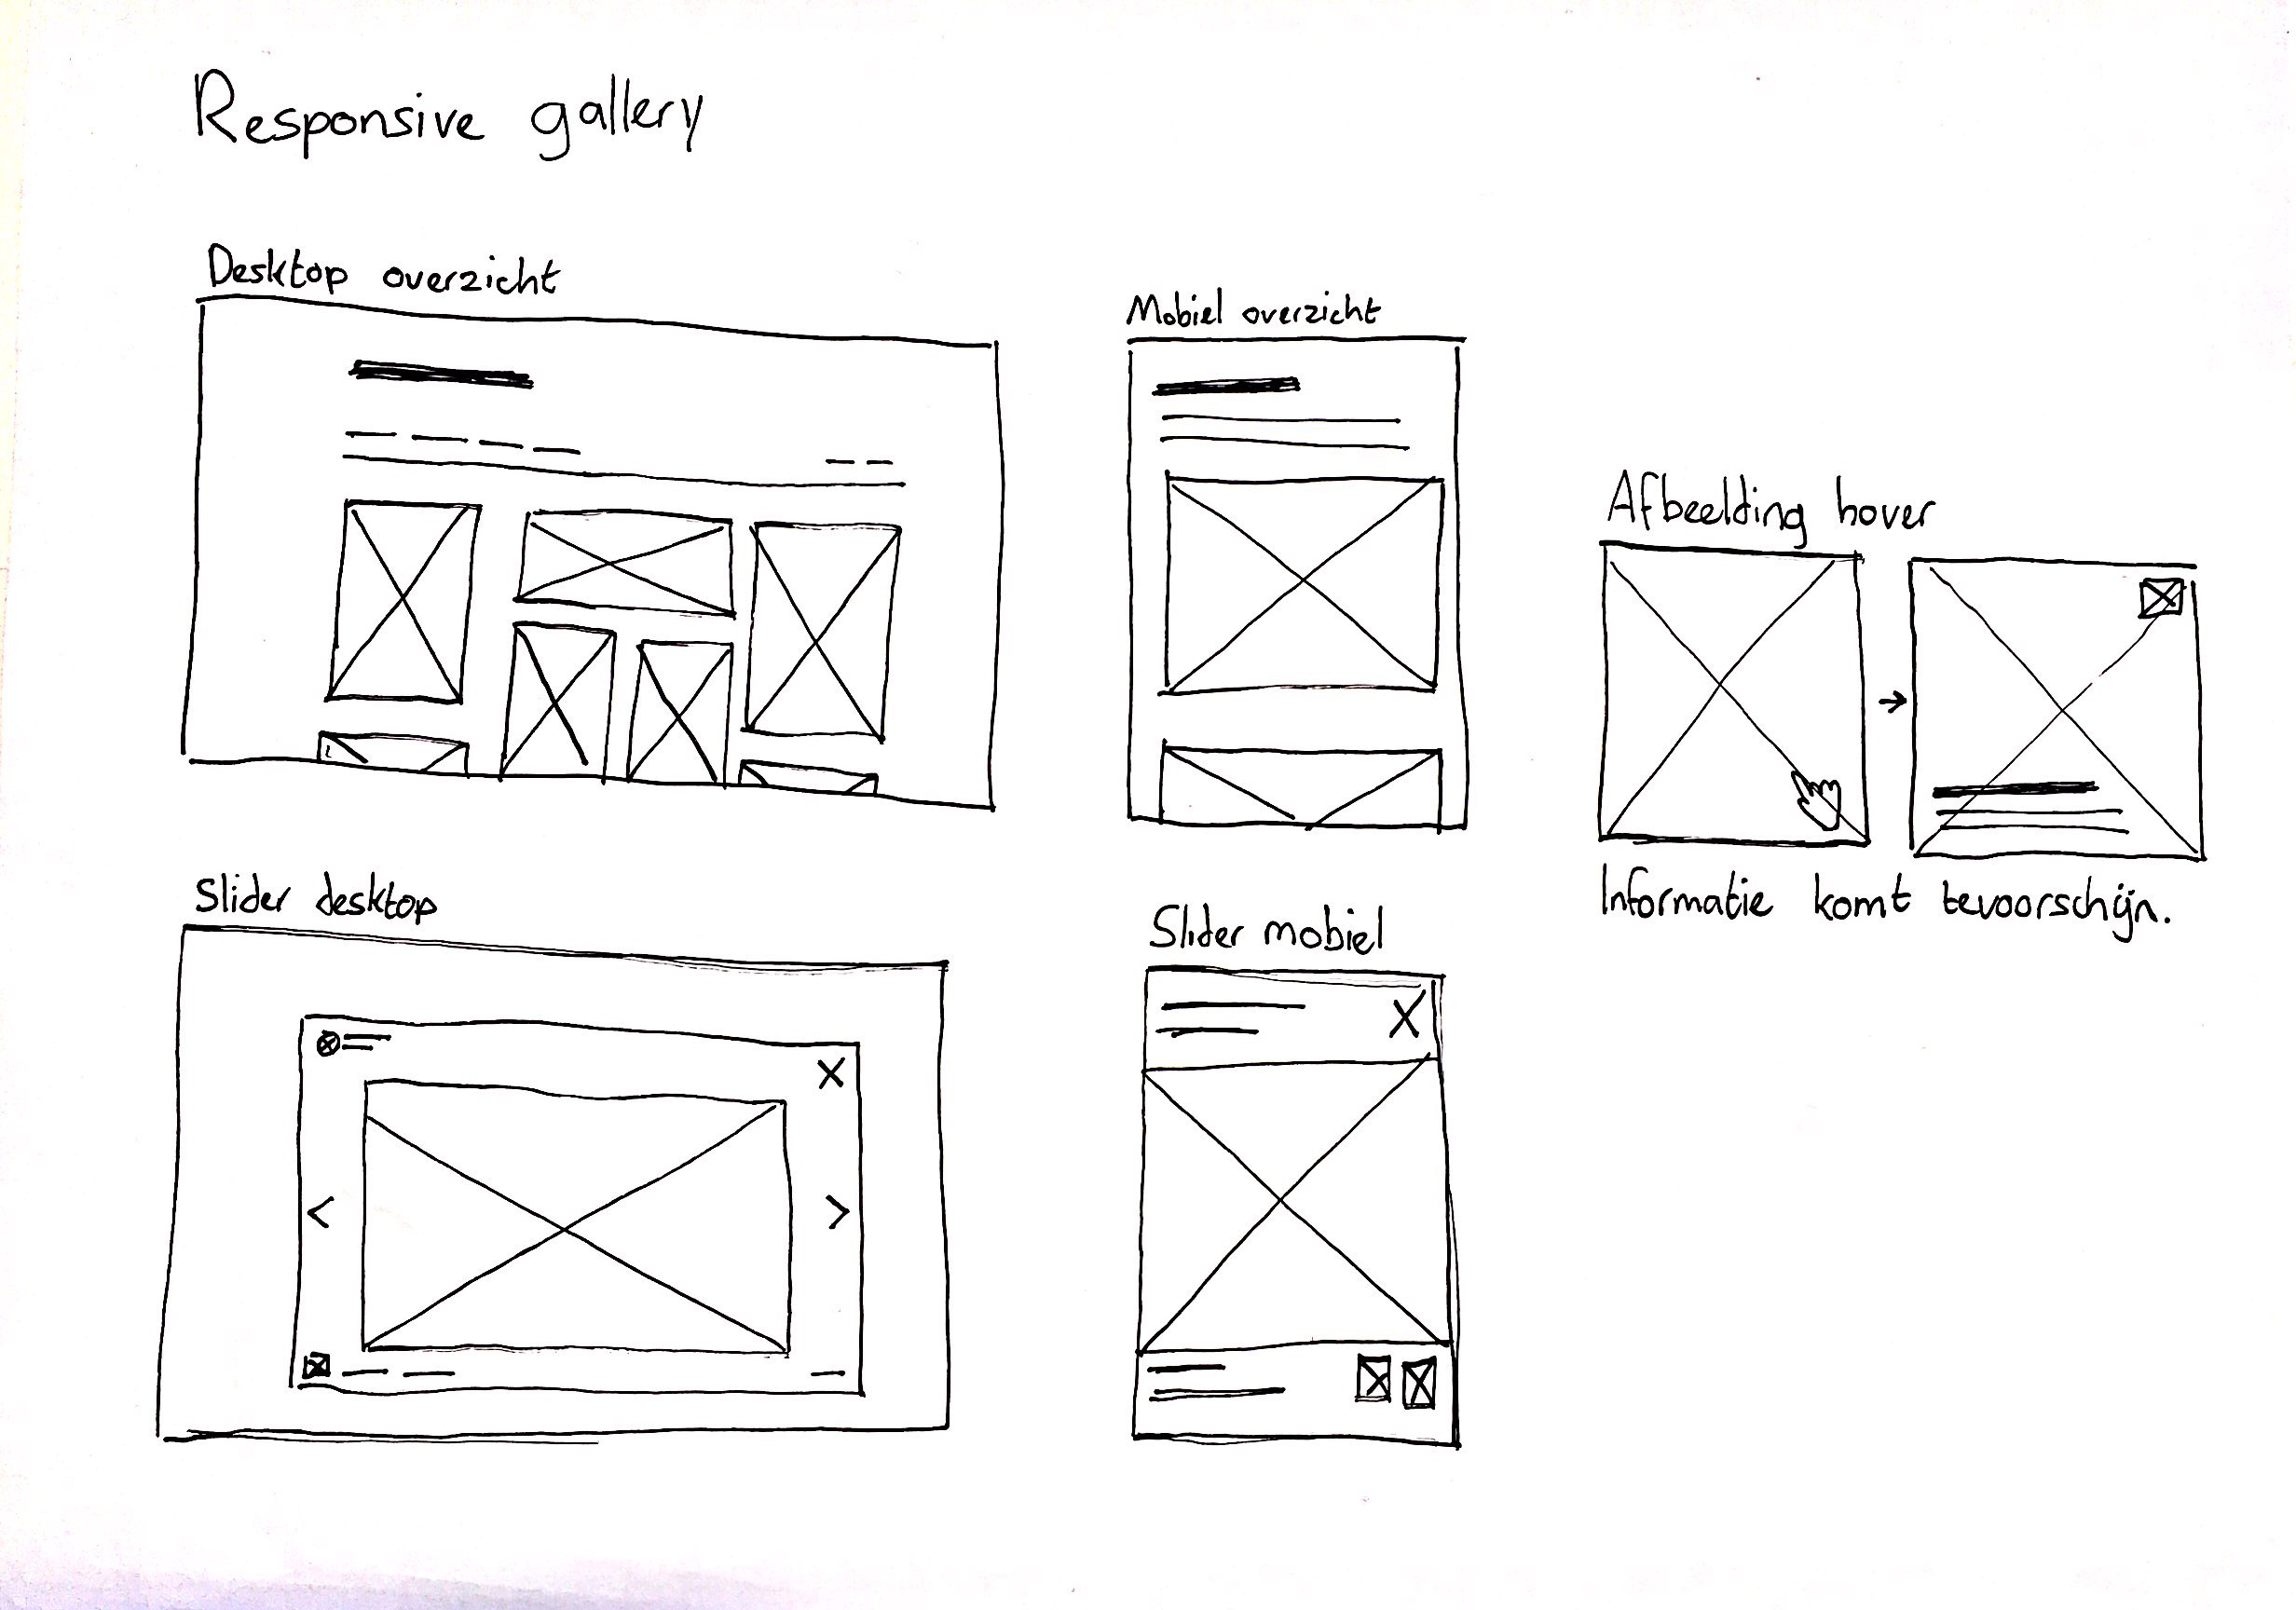 Responsive gallery
Desktop overzicht
Mobiel overzicht
Afbeelding hover
Informatie komt tevoorschijn.
Slider desktop
Slider mobiel